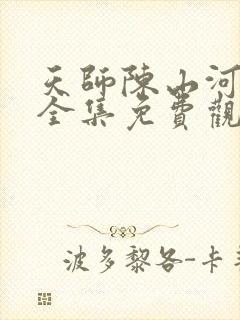 天師陳山河
全集免費觀
波多黎各-卡